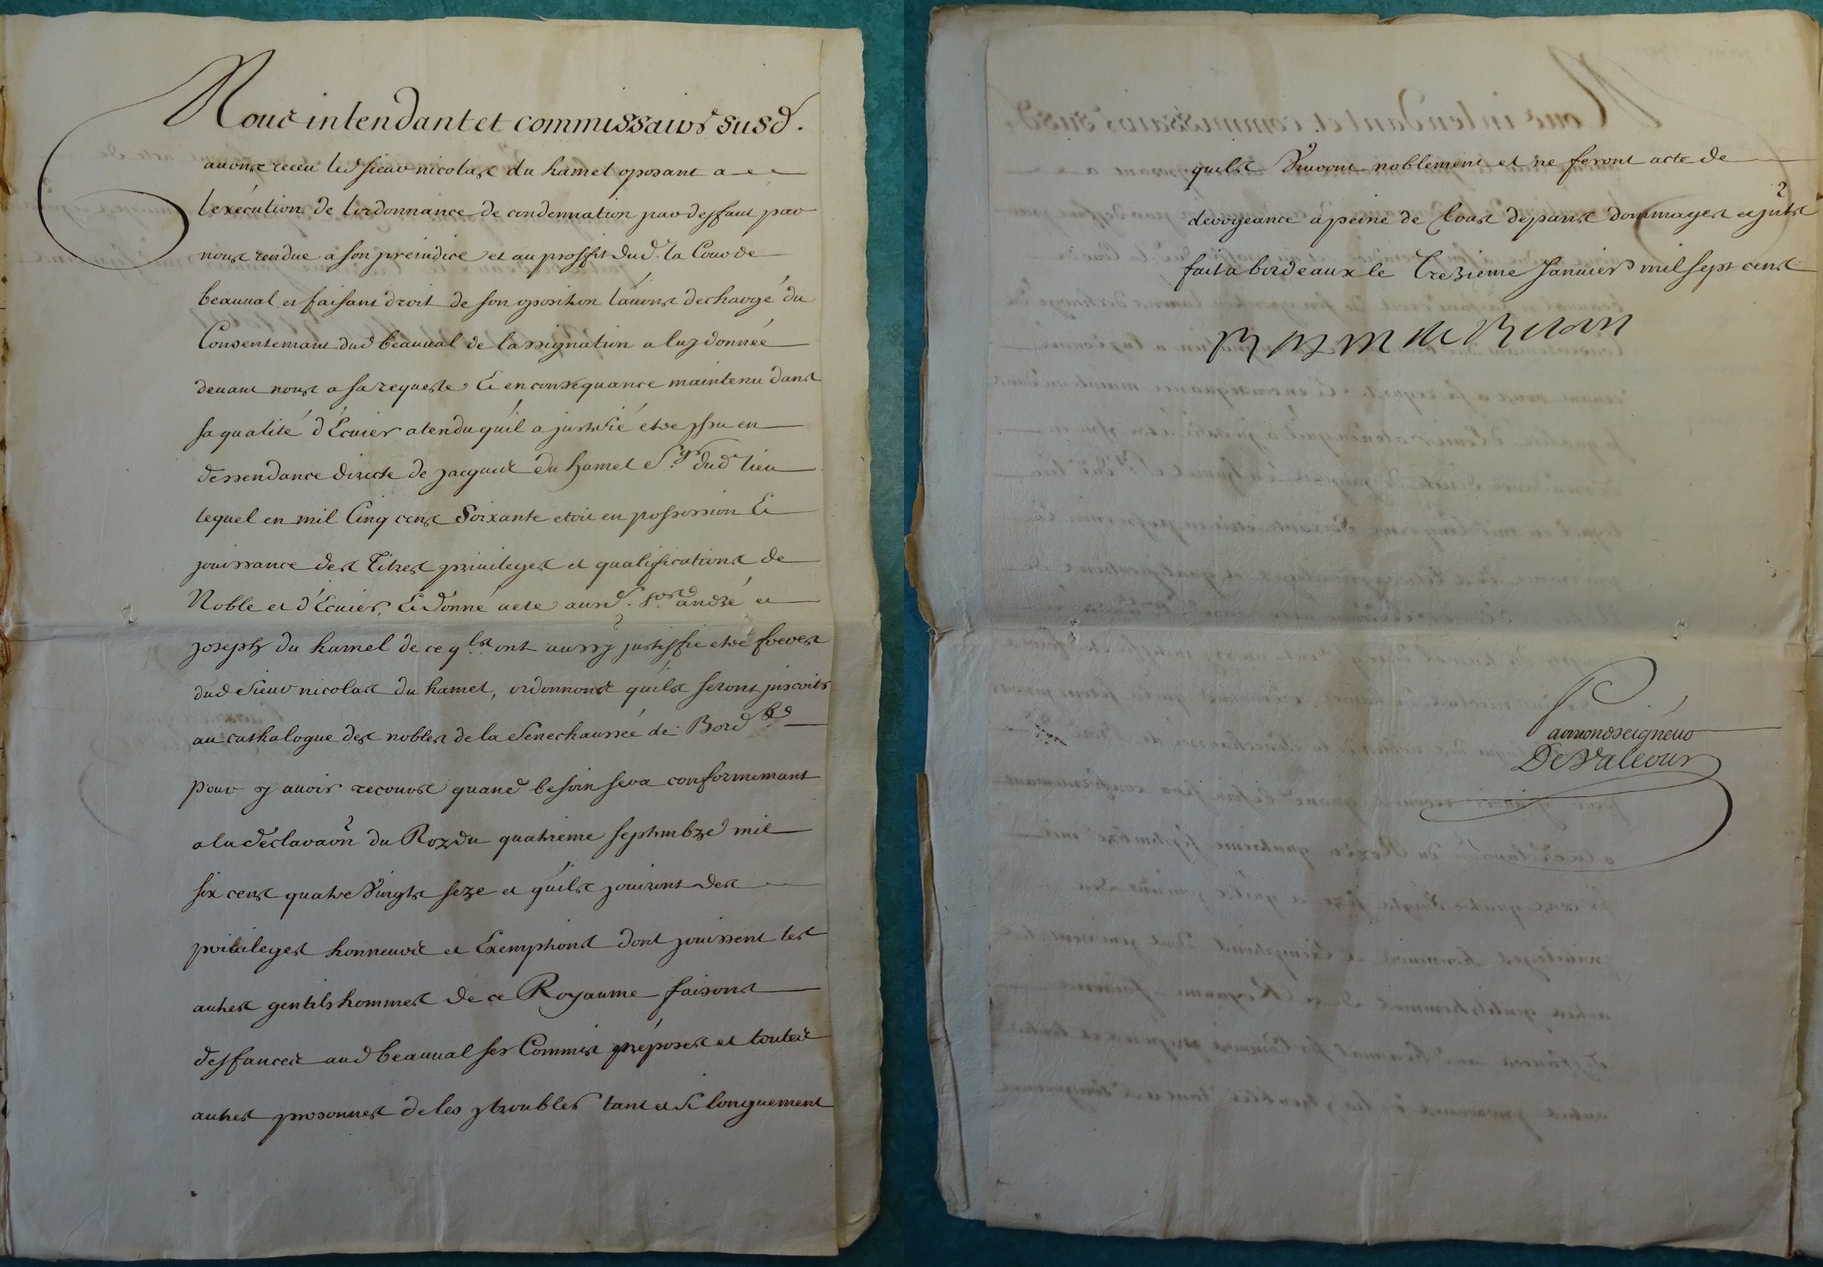 Nous intendant et commissaire susd.
avons receu led sieur nicolas du hamel oposant a
lexécution de lordonnance de condemnation par deffaut par
nous rendue a son prejudice et au proffit dud. la Cour de
beauval et faisant droit de son oposition lavons dechargé du
Consentemant dud beauval de lassignation a luy donnée
devant nous a sa requeste Et en consequance maintenu dans
sa qualité d'Ecuier atendu quil a justifié etre issu en
dessendance directe de jacques du hamel Sgr dud lieu
lequel en mil Cinq cens Soixante etoit en possession Et
jouissance des Titres privileges et qualifications de
Noble et d'Ecuier, Et donné acte ausd. Srs andré et
joseph du hamel de ce qls ont aussy justiffié etre freres
dud sieur nicolas du hamel, ordonnons quils seront inscrits
au cathalogue des nobles de la senechaussée de Bord
pour y avoir recours quand besoin sera conformemant
a la declaraon du Roy du quatrieme septembre mil
six cens quatre vingts seze et quils jouiront des
privileges honneurs et Exemptions dont jouissent les
autres gentilshommes de ce Royaume faisons
deffances aud beauval ses Commis préposés et toutes
autres personnes de les y troubler tant et si longuement
quils vivront noblement et ne feront acte de
derogeance a peine de tous depans dommages et jnts
fait a bordeaux le trezieme Janvier mil sept cens
Bazin de Bezons
par monseigneur
De Valcour